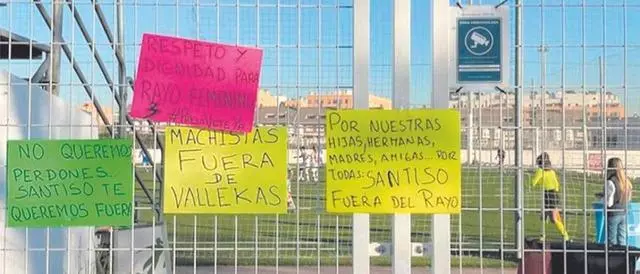 RESPETO Y
DIGNIDAD PARA
RAYO FEMENINO
MACHISTAS
FUERA
DE
VALLEKAS
NO QUEREMOS
PERDONES...
SANTISO TE
QUEREMOS FUERA
POR NUESTRAS
HIJAS, HERMANAS,
MADRES, AMIGAS... POR
TODAS: SANTISO
FUERA DEL RAYO